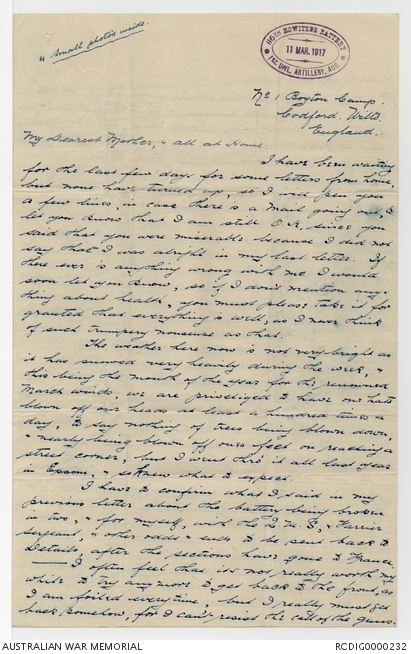 " small photos inside.
116TH HOWITZER BATTERY
11 MAR. 1917
ARTILLERY, AUS.
No 1 Boyton Camp.
Codford. Wilts.
England.
My Dearest Mother, " all at Home.
I have been waiting
for the last few days for some letters from home,
but none have turned up, so I will pen you
a few lines, in case there is a mail going out, to
let you know that I am still O.K, since you
said that you were miserable because I did not
say that I was alright in my last letter. If
there ever is anything wrong with me I would
soon let you know, so if I don't mention any-
thing about health, you must please take it for
granted that everything is well, as I never think
of such trumpery nonsense as that.
The weather here now is not very bright as
it has snowed very heavily during the week, "
this being the month of the year for the renowned
March winds, we are privileged to have our hats
blown off our heads at least a hundred times a
day, to say nothing of trees being blown down,
" nearly being blown off ones feet on reaching a
street corner, but I went thro' it all last year
in Epsom, " so knew what to expect.
I have to confirm what I said in my
previous letter about the battery being broken
in two, " for myself, with the Q.M.S, " Farrier
sergeant, " other odds " ends to be sent back to
Details, after the sections have gone to France.
I often feel that its not really worth my
while to try any more to get back to the front, as
I am foiled everytime, but I really must get
back somehow, for I can't resist the call of the guns.
AUSTRALIAN WAR MEMORIAL
RCDIG0000232